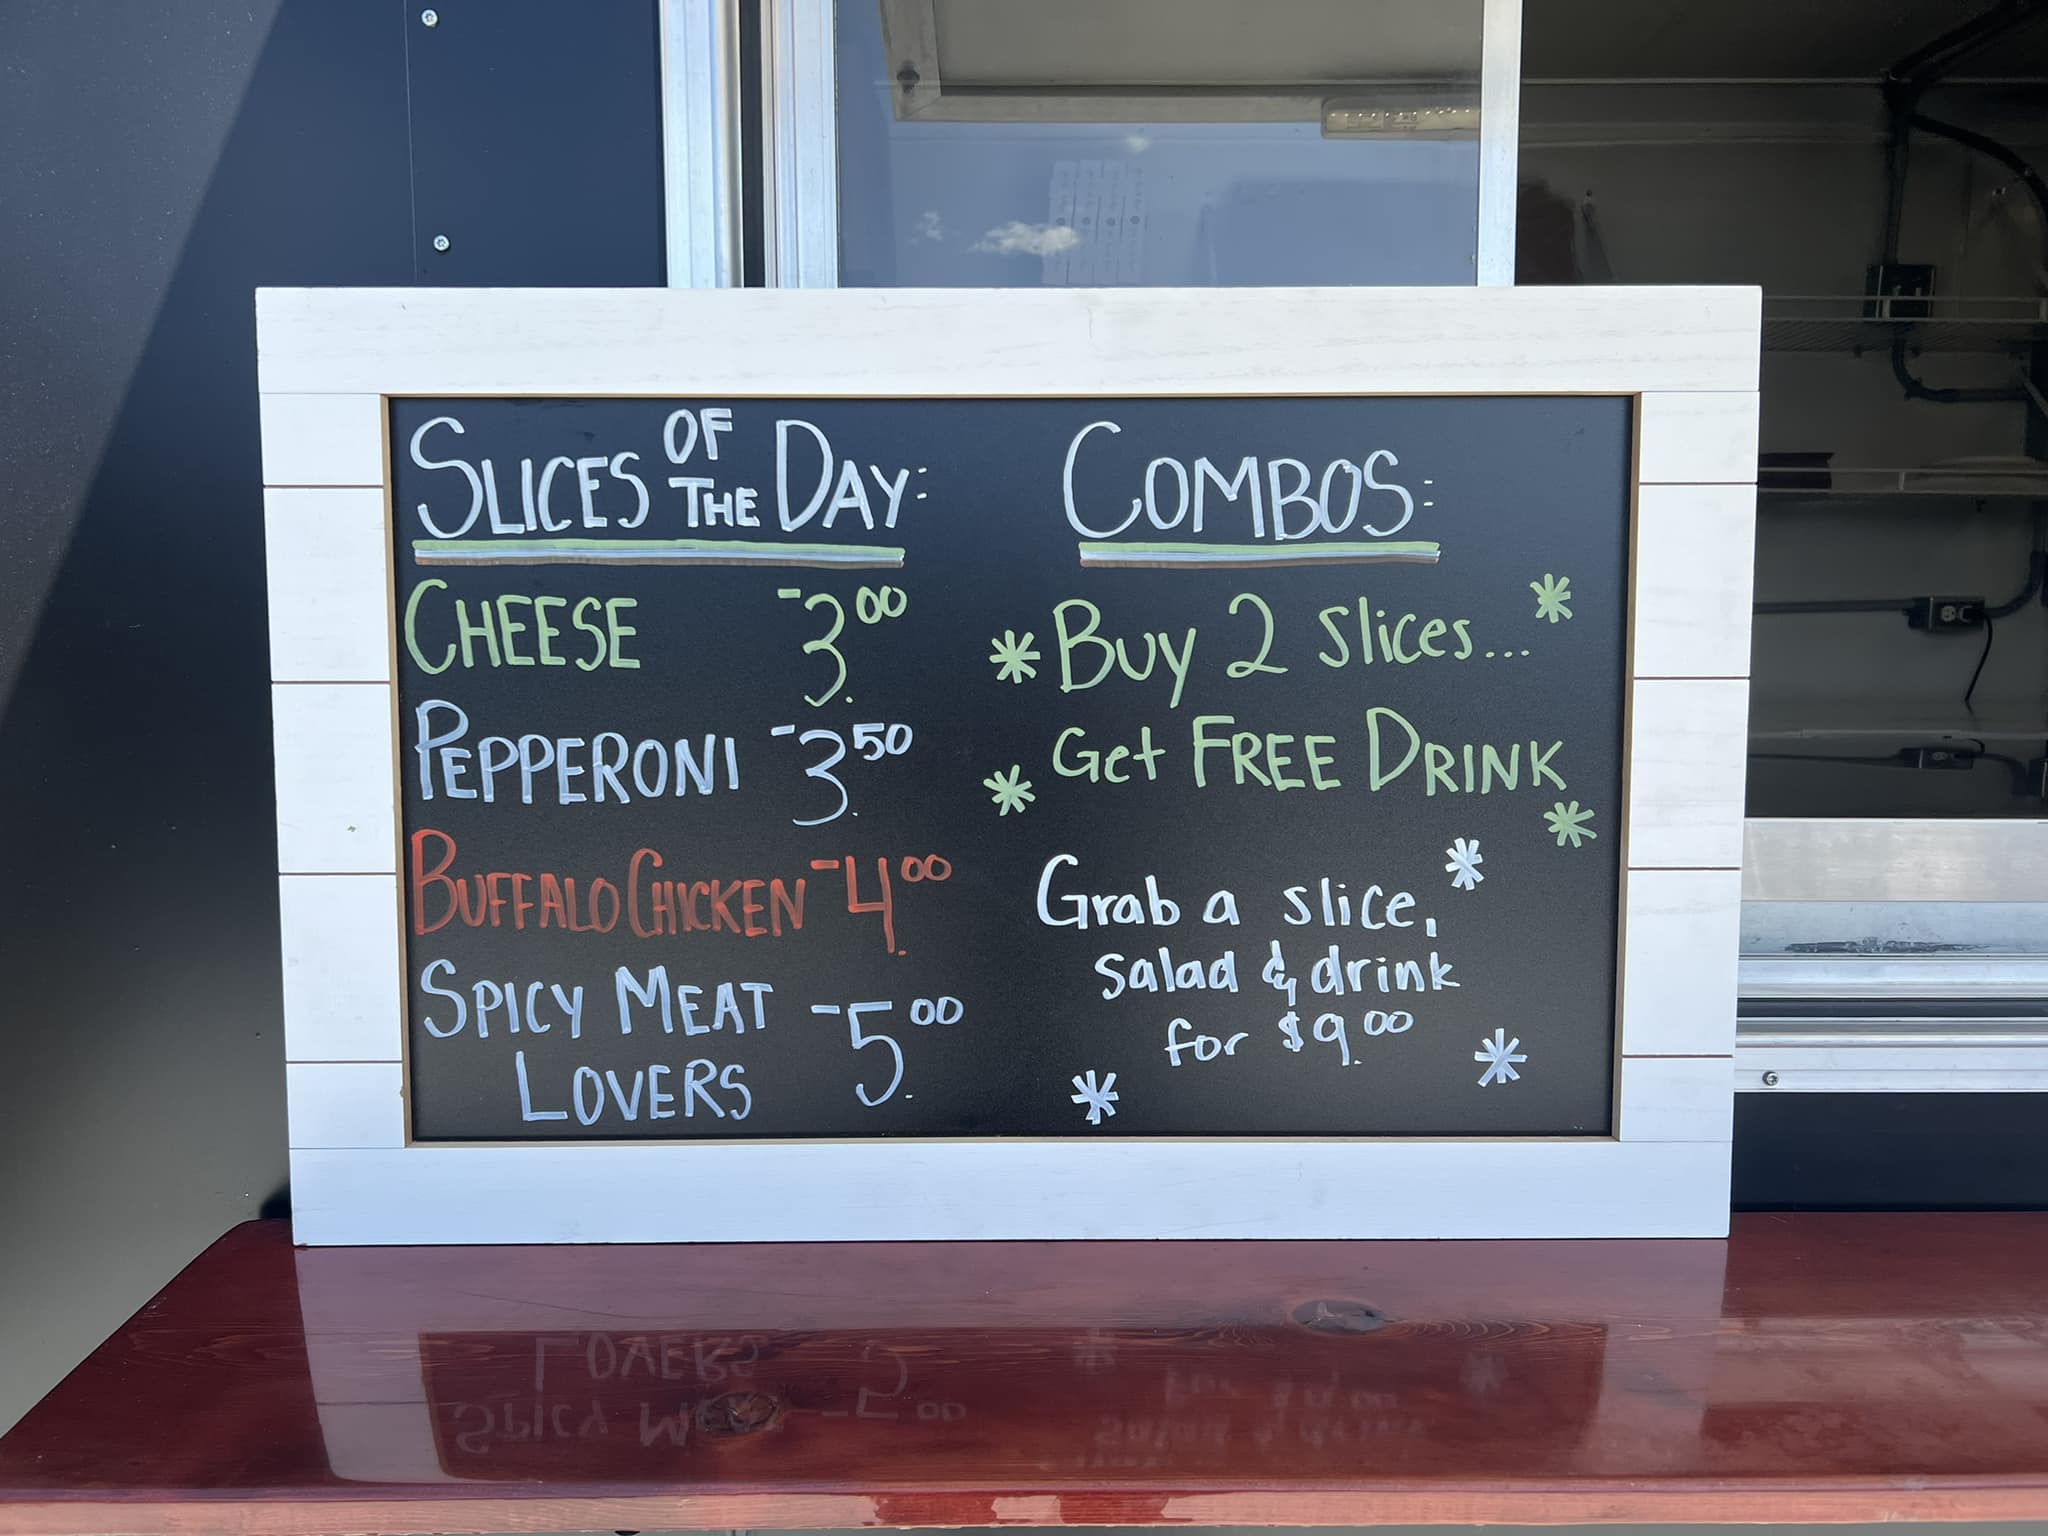 SLICES OF THE DAY:
CHEESE -3.00
PEPPERONI -3.50
BUFFALO CHICKEN -4.00
SPICY MEAT
LOVERS -5.00
COMBOS:
*Buy 2 slices... *
* Get FREE DRINK
*
Grab a slice, *
salad & drink
for $9.00
* *